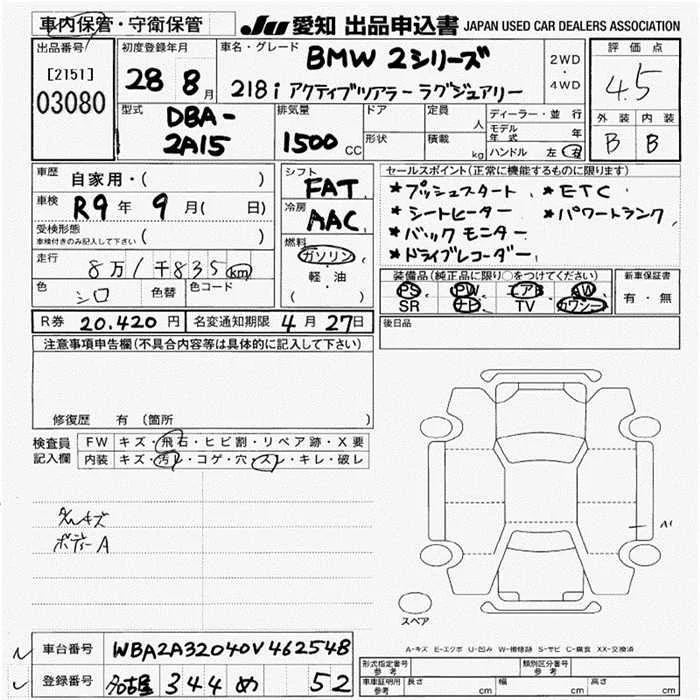 車内保管・守衛保管 JU 愛知 出品申込書 JAPAN USED CAR DEALERS ASSOCIATION
出品番号 初度登録年月 車名・グレード 評価点
[2151] 28年 8月 BMW 2シリーズ 2WD・4WD 4.5
03080 218i アクティブツアラー ラグジュアリー
型式 排気量 ドア 定員 人 ディーラー・並行 外装 内装
DBA-2A15 1500cc 形状 積載 kg モデル年式 年 B B
ハンドル 左 右
車歴 自家用・( ) シフト FAT セールスポイント(正常に機能するものに限ります)
車検 R9年 9月( 日) 冷房 AAC ★プッシュスタート ★ETC
受検形態 ( ) ★シートヒーター ★パワートランク
車検付きのみ記入して下さい 燃料 ★バックモニター
走行 8万1千835km ガソリン ★ドライブレコーダー
軽・油
( )
色 シロ 色替 色コード 装備品(純正品に限り○をつけてください) 新車保証書
PS PW エアB AW 有・無
SR ナビ TV カワシート
R券 20.420円 名変通知期限 4月27日 後日品
注意事項申告欄(不具合内容等は具体的に記入して下さい)
修復歴 有(箇所 )
検査員記入欄 FW キズ・飛石・ヒビ割・リペア跡・X要
内装 キズ・汚レ・コゲ・穴・スレ・キレ・破レ
キズ
ボディーA
A1
スペア
A-キズ E-エクボ U-凹み W-補修跡 S-サビ C-腐食 XX-交換済
車台番号 WBA2A32040V462548 形式指定番号 参考 類別区分番号 参考
登録番号 名古屋 344 め 52 車庫証明用 参考 長さ cm 幅 cm 高さ cm